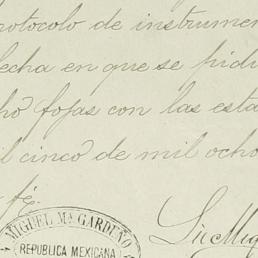 rotocolo de instrumen
echa en que se pidi
ho fojas con las esta
il cinco de mil ocho
fé.
MIGUEL Mª GARDUÑO
REPUBLICA MEXICANA
Lic Mig